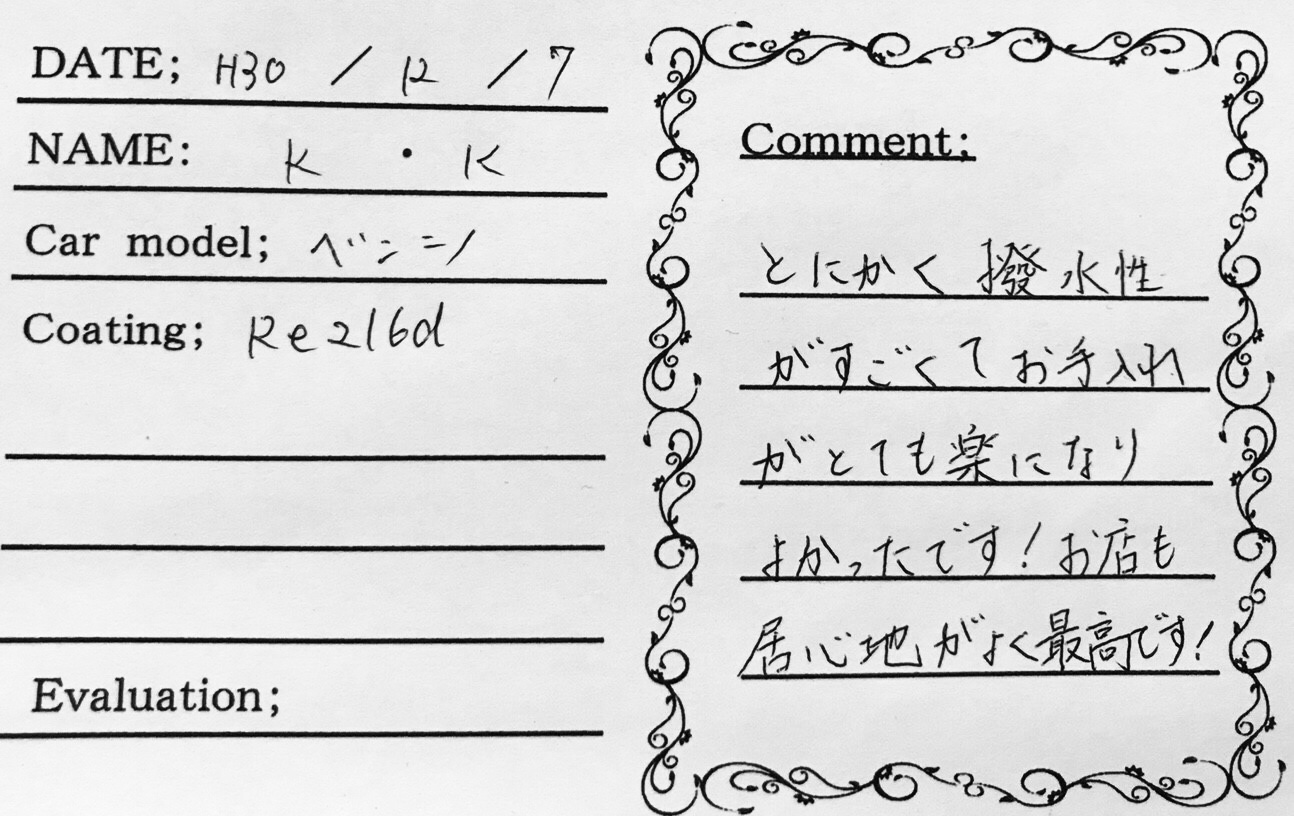 DATE; H30 / 12 / 7
NAME: K ・ K
Car model; ベンニノ
Coating; Re216d
Evaluation;
Comment;
とにかく撥水性
がすごくてお手入れ
がとても楽になり
よかったです!お店も
居心地がよく最高です!